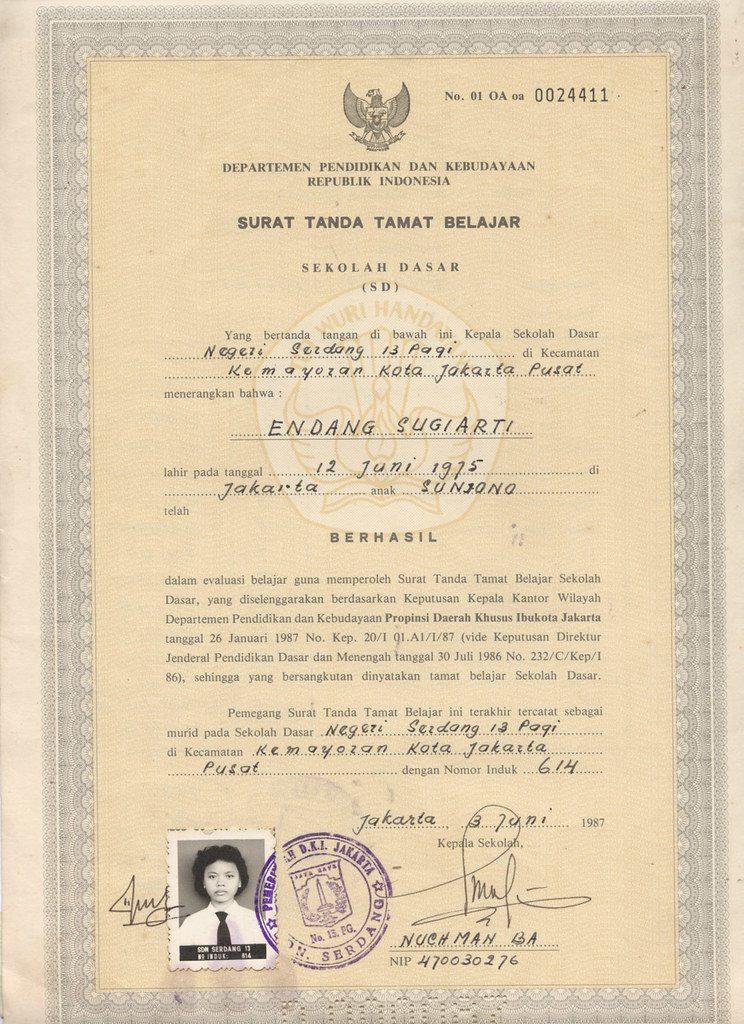 No. 01 OA oa 0024411
DEPARTEMEN PENDIDIKAN DAN KEBUDAYAAN
REPUBLIK INDONESIA
SURAT TANDA TAMAT BELAJAR
SEKOLAH DASAR
(SD)
WURI HANDA
Yang bertanda tangan di bawah ini Kepala Sekolah Dasar
Negeri Serdang 13 Pagi di Kecamatan
Kemayoran Kota Jakarta Pusat
menerangkan bahwa :
ENDANG SUGIARTI
lahir pada tanggal 12 Juni 1975 di
Jakarta anak SUNJONO
telah
BERHASIL
dalam evaluasi belajar guna memperoleh Surat Tanda Tamat Belajar Sekolah
Dasar, yang diselenggarakan berdasarkan Keputusan Kepala Kantor Wilayah
Departemen Pendidikan dan Kebudayaan Propinsi Daerah Khusus Ibukota Jakarta
tanggal 26 Januari 1987 No. Kep. 20/I 01.A1/I/87 (vide Keputusan Direktur
Jenderal Pendidikan Dasar dan Menengah tanggal 30 Juli 1986 No. 232/C/Kep/I
86), sehingga yang bersangkutan dinyatakan tamat belajar Sekolah Dasar.
Pemegang Surat Tanda Tamat Belajar ini terakhir tercatat sebagai
murid pada Sekolah Dasar Negeri Serdang 13 Pagi
di Kecamatan Kemayoran Kota Jakarta
Pusat dengan Nomor Induk 614
Jakarta, 3 Juni 1987
Kepala Sekolah,
D.K.I. JAKARTA
JAYA RAYA
No. 13. PG.
SERDANG
SDN SERDANG 13
NO INDUK: 614
NUCHMAN BA
NIP 470030276